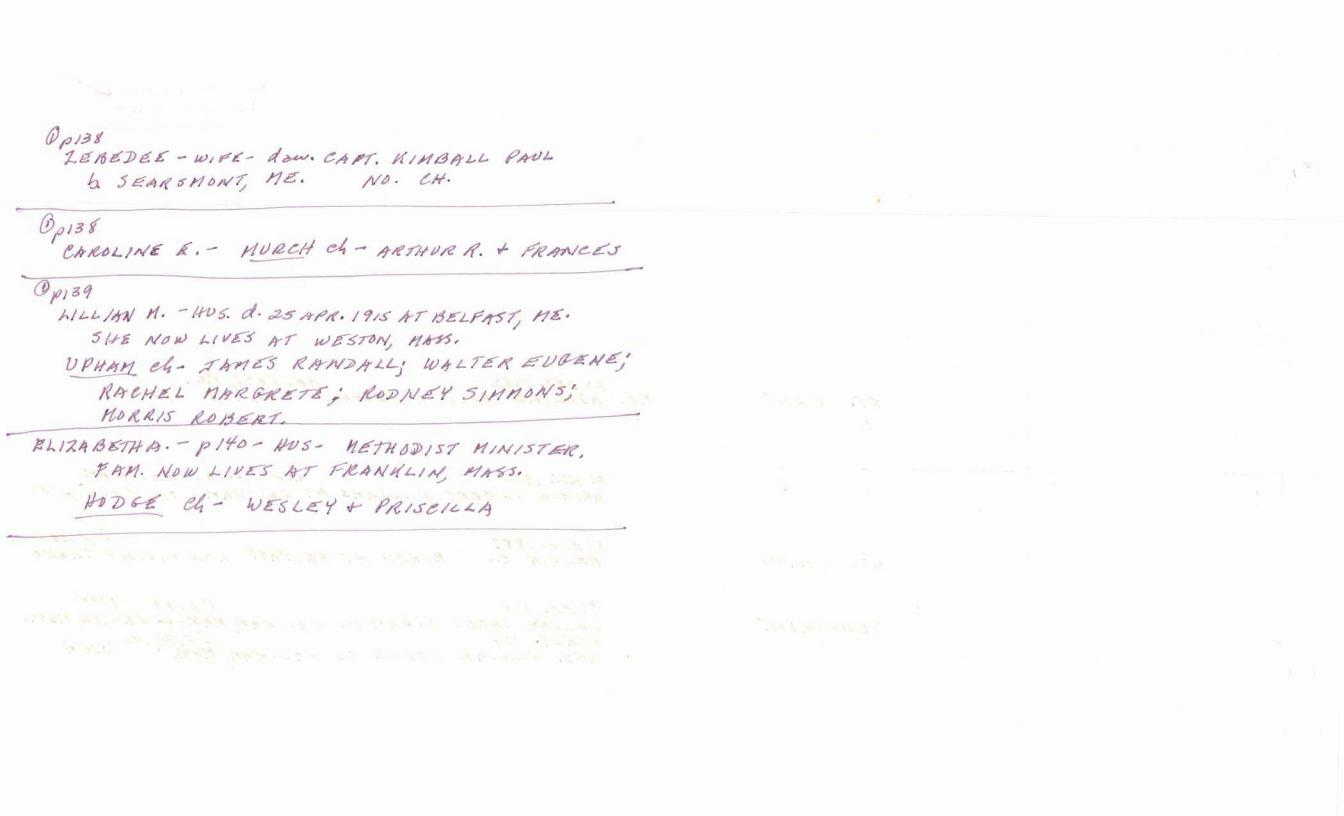 ① p138
ZEBEDEE - WIFE - daw. CAPT. KIMBALL PAUL
b SEARSMONT, ME. NO. CH.
① p138
CAROLINE E. - MURCH ch - ARTHUR R. + FRANCES
① p139
LILLIAN M. - HUS. d. 25 APR. 1915 AT BELFAST, ME.
SHE NOW LIVES AT WESTON, MASS.
UPHAM ch - JAMES RANDALL; WALTER EUGENE;
RACHEL MARGRETE; RODNEY SIMMONS;
MORRIS ROBERT.
ELIZABETH A. - p140 - HUS - METHODIST MINISTER.
FAM. NOW LIVES AT FRANKLIN, MASS.
HODGE ch - WESLEY + PRISCILLA